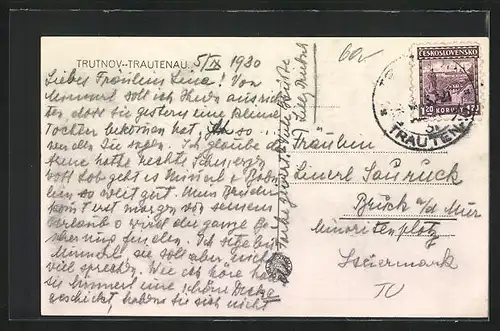 TRUTNOV--TRAUTENAU 5/IX 1930
Liebes Fräulein Lina! Von
Mimmerl soll ich Ihnen ausrich-
ten, dass sie gestern eine kleine
Tochter bekommen hat, so
werden Sie sagen. Ich glaube die
Arme hatte rechte Schmerzen
Gott Lob geht es Mimmerl &
so weit gut. Mein Bruder
kommt erst morgen von seinem
Urlaub & wird die ganze Be-
scherung finden. Ich sitze bei
Mimmerl, sie soll aber nicht
viel sprechen. Wie ich höre haben
sie Mimmerl eine schöne Decke
geschickt, haben Sie sich nicht
Grüsse
60
ČESKOSLOVENSKO
1.20 KORUNY 1.20
TRAUTENAU
Fräulein
Linerl
Bruck a/d Mur
Minoritenplatz
Steiermark